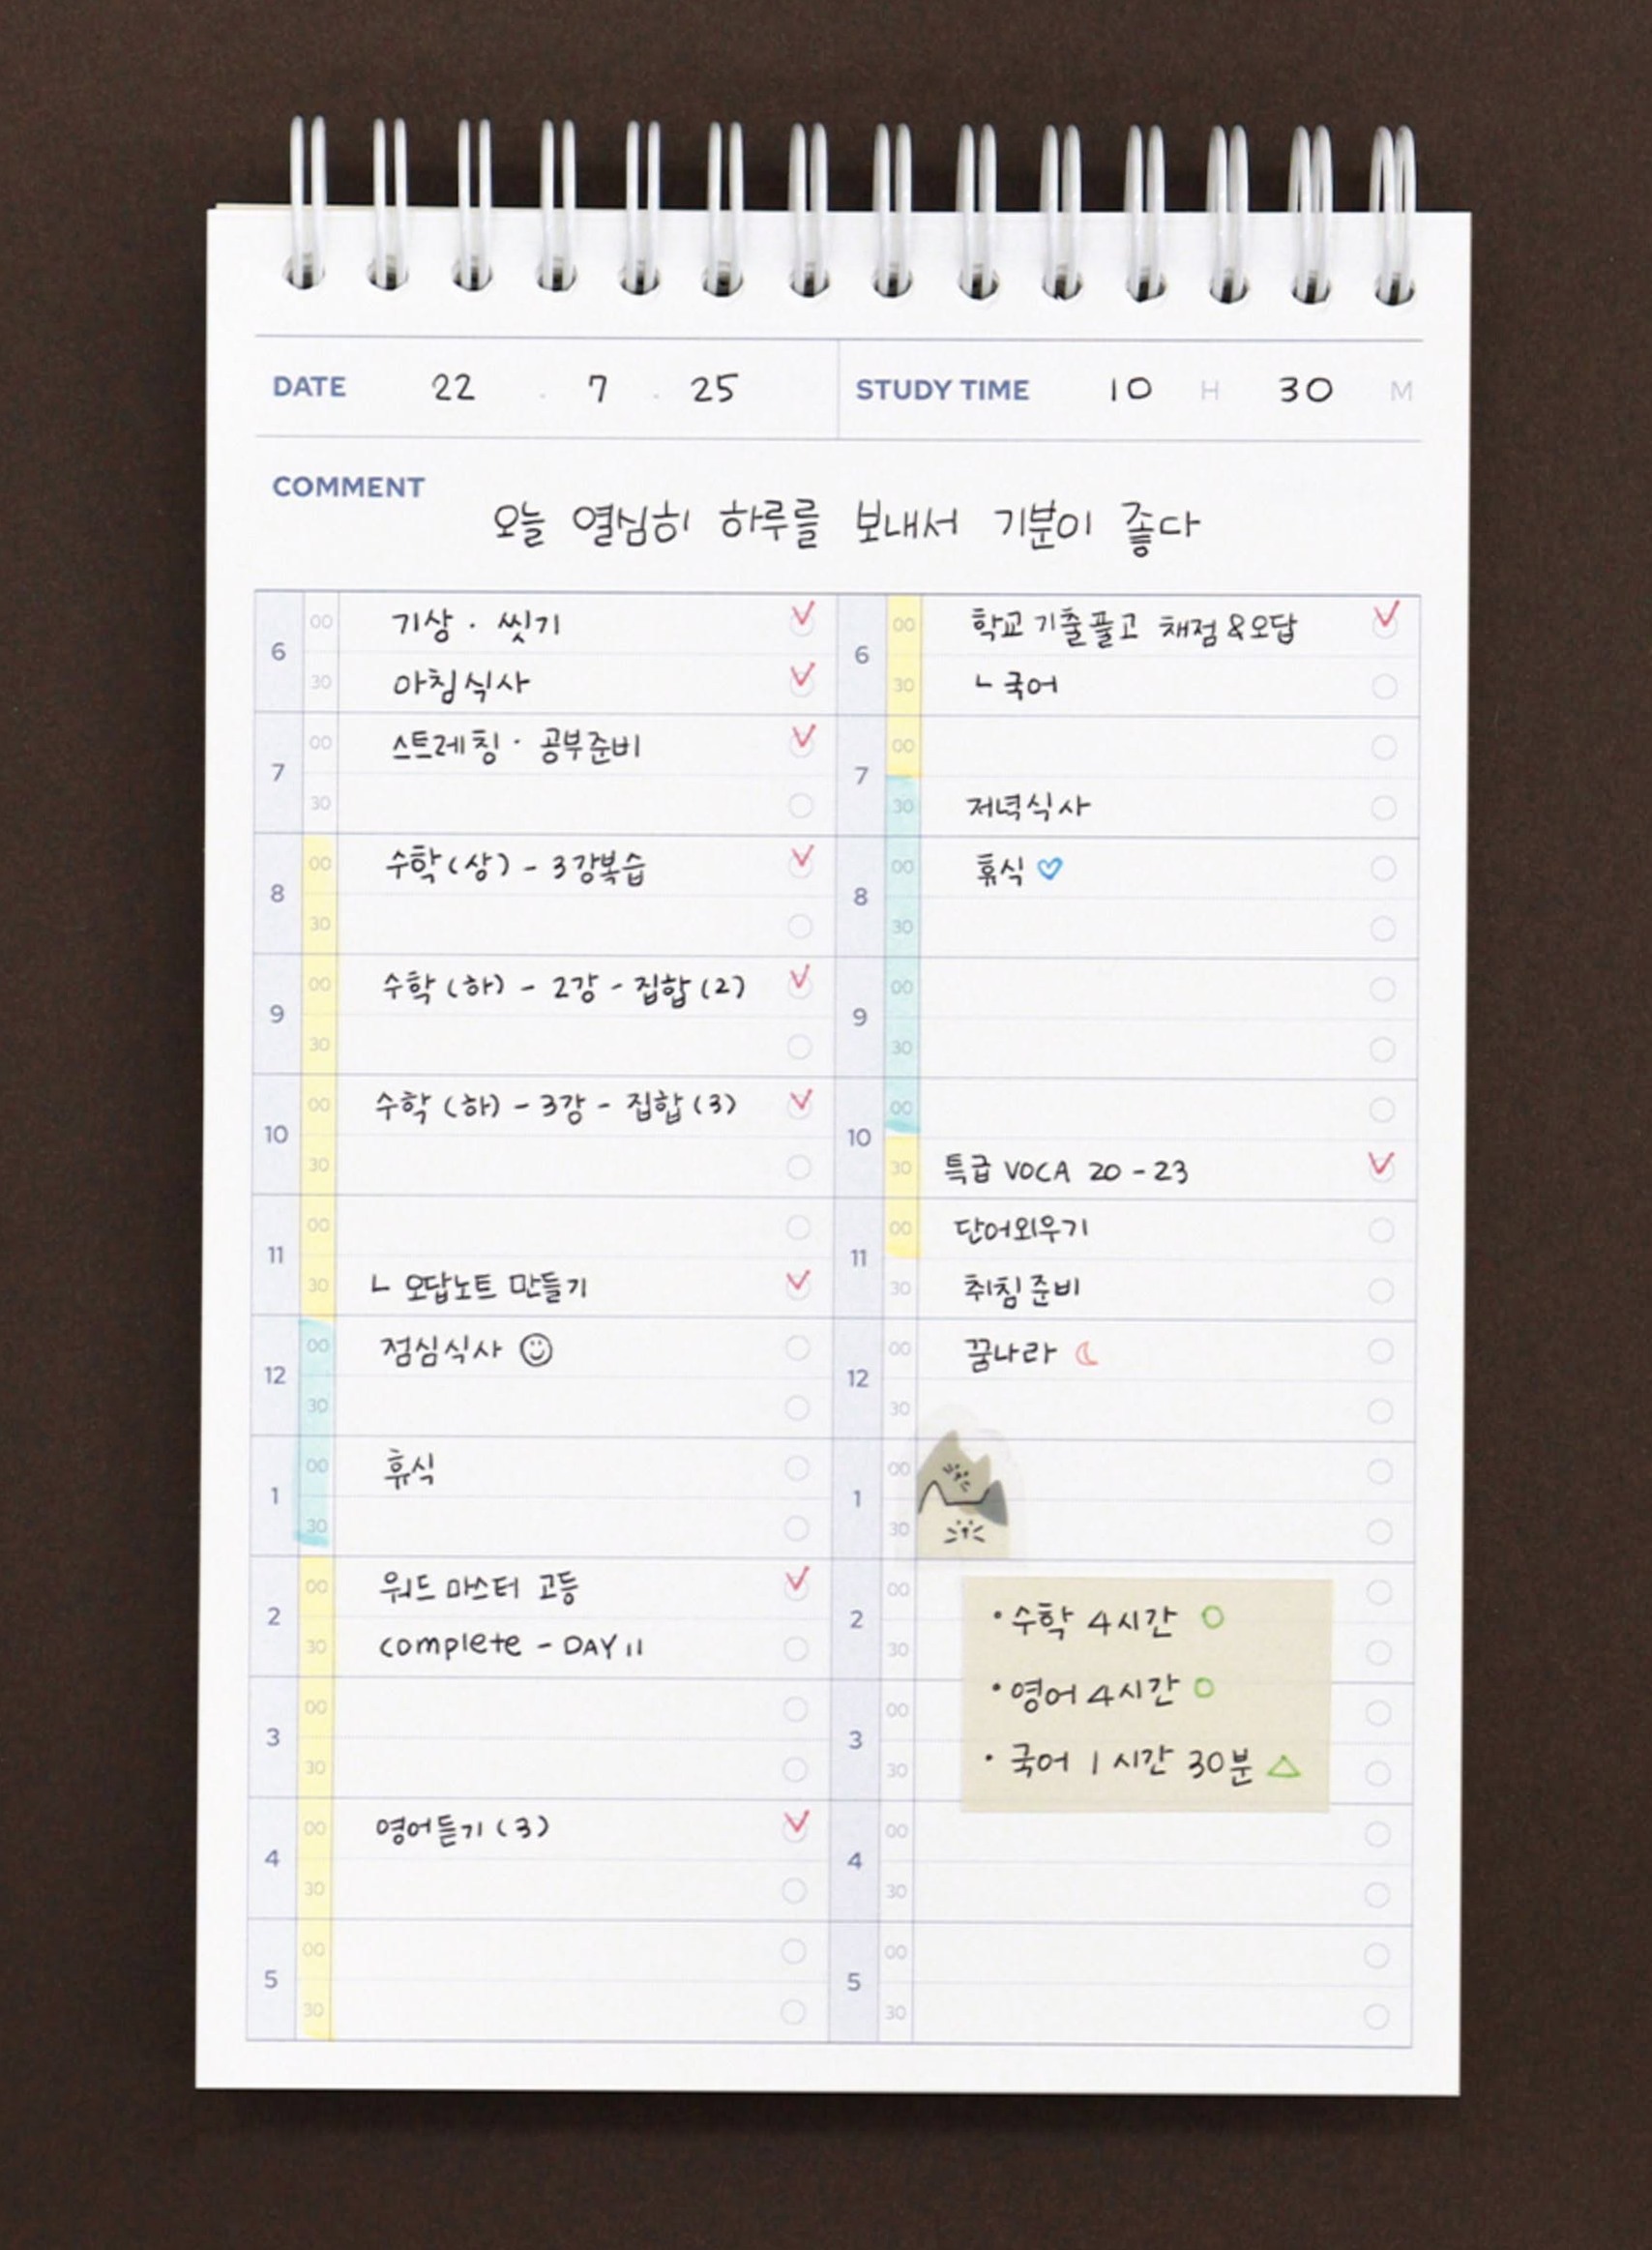 DATE 22 . 7 . 25 STUDY TIME 10 H 30 M
COMMENT
오늘 열심히 하루를 보내서 기분이 좋다
6
00 기상 · 씻기
30 아침식사
7
00 스트레칭 · 공부준비
30
8
00 수학(상) - 3강복습
30
9
00 수학(하) - 2강 - 집합(2)
30
10
00 수학(하) - 3강 - 집합(3)
30
11
00
30 ㄴ 오답노트 만들기
12
00 점심식사
30
1
00 휴식
30
2
00 워드마스터 고등
30 complete - DAY 11
3
00
30
4
00 영어듣기(3)
30
5
00
30
6
00 학교기출풀고 채점&오답
30 ㄴ국어
7
00
30 저녁식사
8
00 휴식
30
9
00
30
10
00
30 특급 VOCA 20 - 23
11
00 단어외우기
30 취침준비
12
00 꿈나라
30
1
00
30
2
00
30
3
00
30
• 수학 4시간
• 영어 4시간
• 국어 1시간 30분
4
00
30
5
00
30